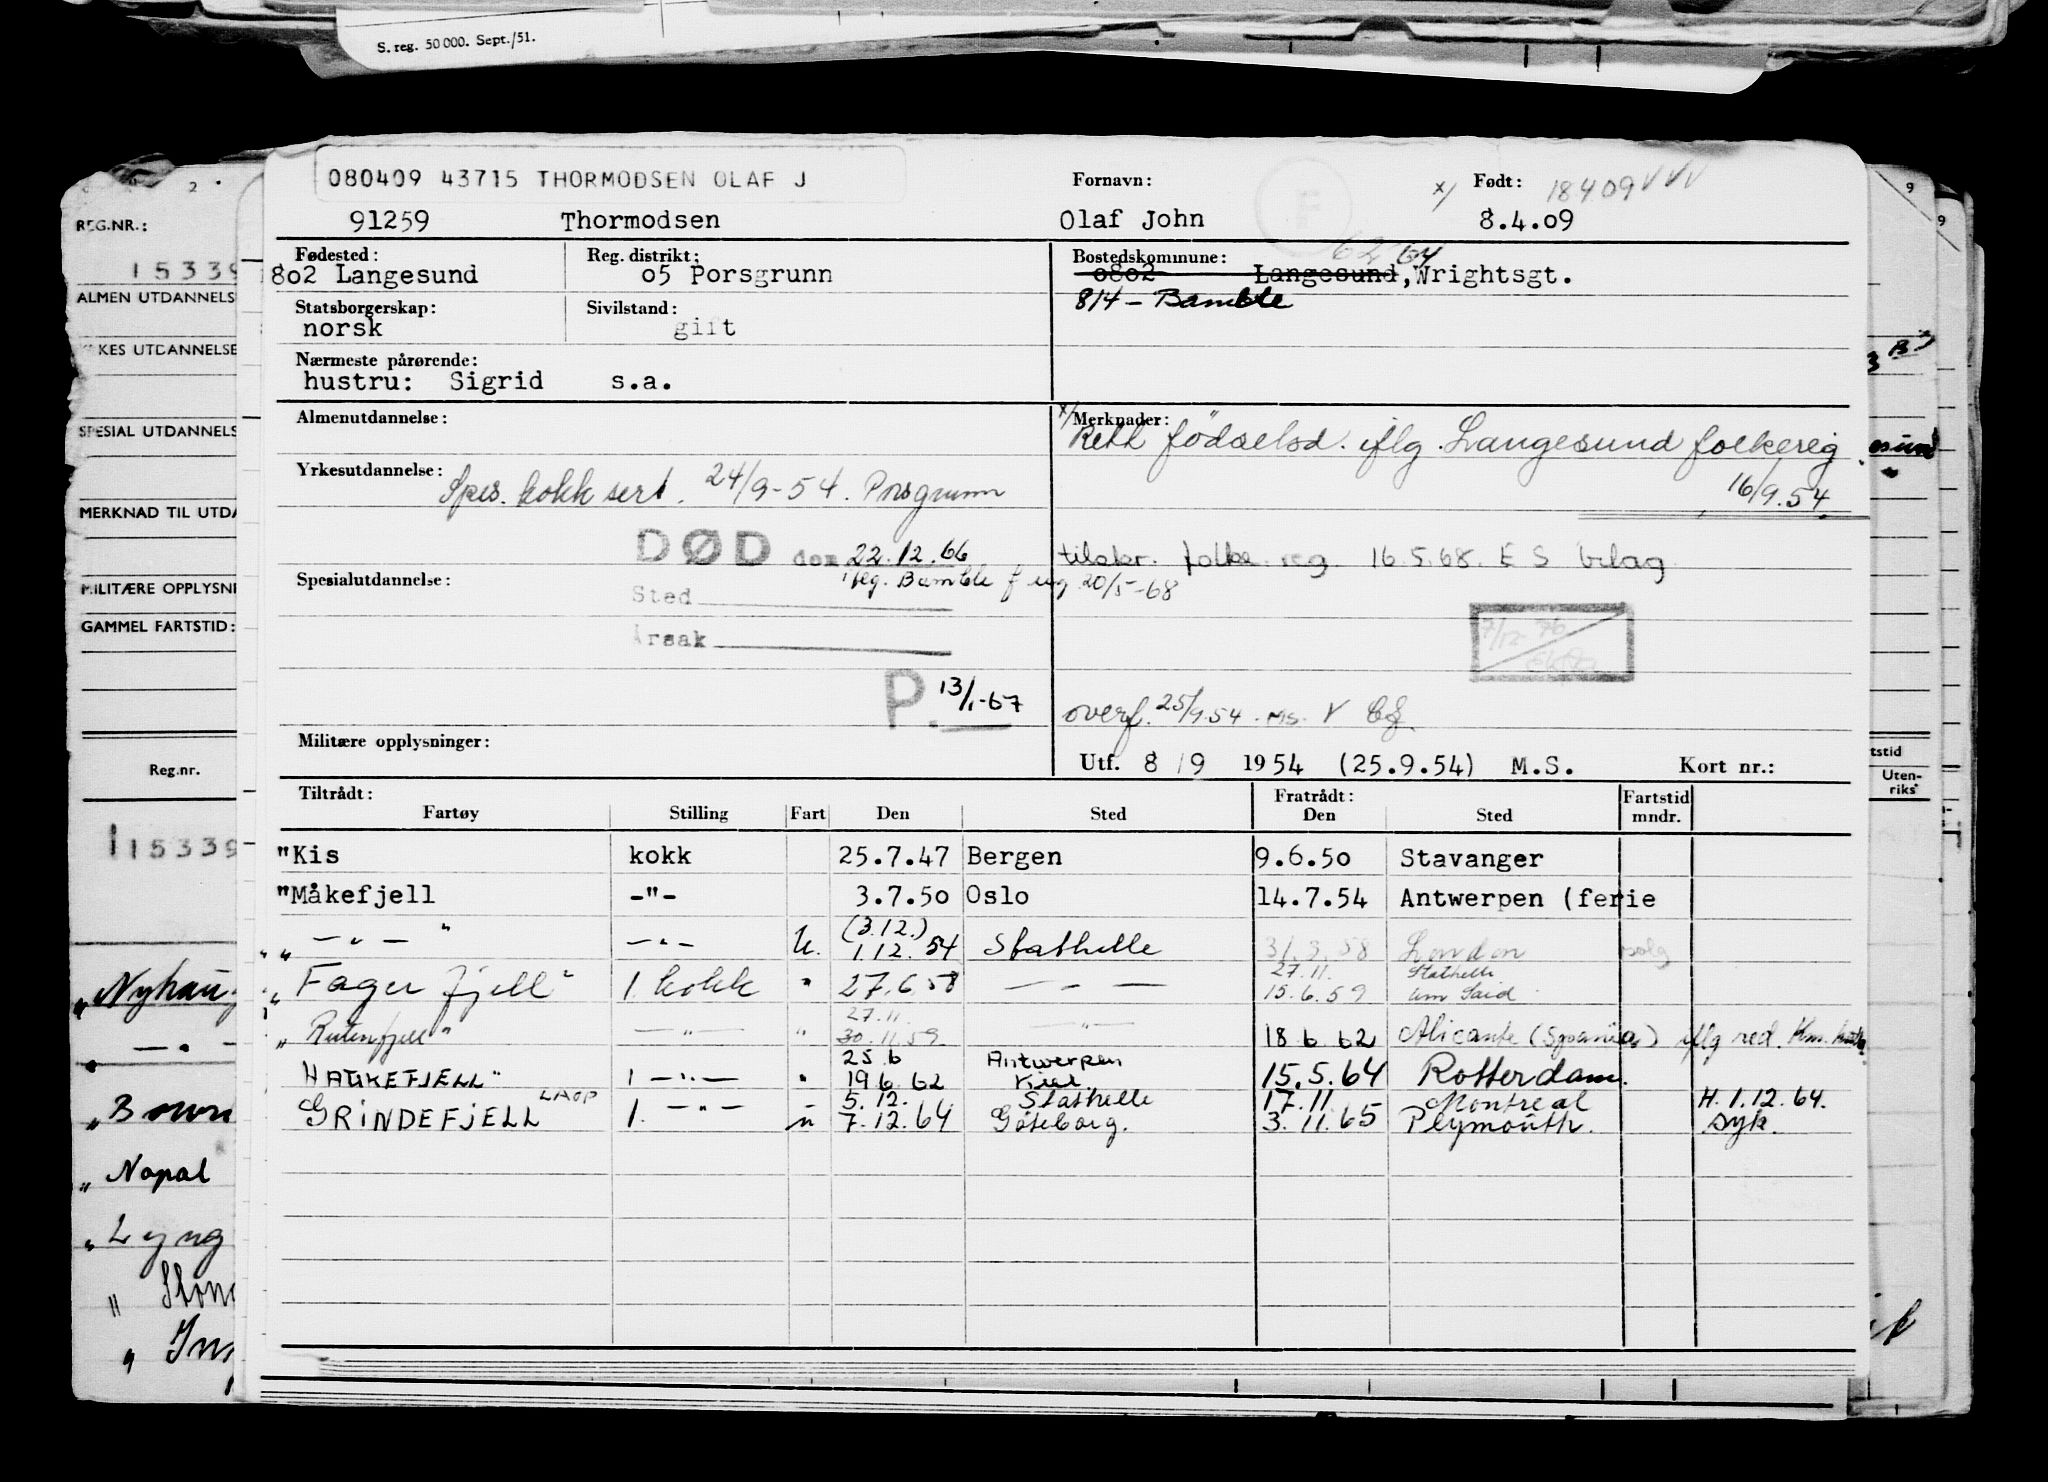 S. reg. 50 000. Sept./51.
2
REG.NR.:
15339
ALMEN UTDANNELS
KES UTDANNELSE
SPESIAL UTDANNELS
MERKNAD TIL UTDA
MILITÆRE OPPLYSNI
GAMMEL FARTSTID:
Reg.nr.
15339
"Nyhau
" — " —
"
"Nopal
"Lyng
080409 43715 THORMODSEN OLAF J
Fornavn: x/ Født: 18409 V V V
91259 Thormodsen Olaf John F 8.4.09
62 64
Fødested: Reg. distrikt: Bostedskommune:
802 Langesund 05 Porsgrunn 0802 Langesund, Wrightsgt.
814 - Bamble
Statsborgerskap: Sivilstand:
norsk gift
Nærmeste pårørende:
hustru: Sigrid s.a.
Almenutdannelse: x/ Merknader:
Rett födselsd. iflg. Langesund folkereg.
Yrkesutdannelse: Spes. kokk sert. 24/9-54. Porsgrunn
16/9.54
DØD den 22.12.66
iflg. Bamble f reg 20/5-68
tilskr. folke reg. 16.5.68. E S bilag
Spesialutdannelse:
Sted
Årsak
P. 13/1-67
overf. 25/9 54. MS. V
Militære opplysninger:
Utf. 8/9 1954 (25.9.54) M.S. Kort nr.:
Tiltrådt: Fratrådt: Fartstid
Fartøy Stilling Fart Den Sted Den Sted mndr.
"Kis kokk 25.7.47 Bergen 9.6.50 Stavanger
"Måkefjell -"- 3.7.50 Oslo 14.7.54 Antwerpen (ferie
" — " — " — " — U. (3.12.) 1.12.54 Stathelle 31.3.58 London solg
"Fagerfjell" 1. kokk " 27.6.58 — " — 27.11. Stathelle
15.6.59 Um Said
"Rutenfjell" — " — " 27.11 30.11.59 — " — 18 6 62 Alicante (Spania) iflg red.
HAUKEFJELL" 1 — " — " 25.6 Antwerpen
19 6. 62 Kiel. 15.5.64 Rotterdam.
GRINDEFJELL LAOP 1. — " — u 5.12. Stathelle 17.11 Montreal H. 1.12.64.
7.12.64 Göteborg. 3.11.65 Plymouth. syk.
9
9
tstid
Uten-
riks